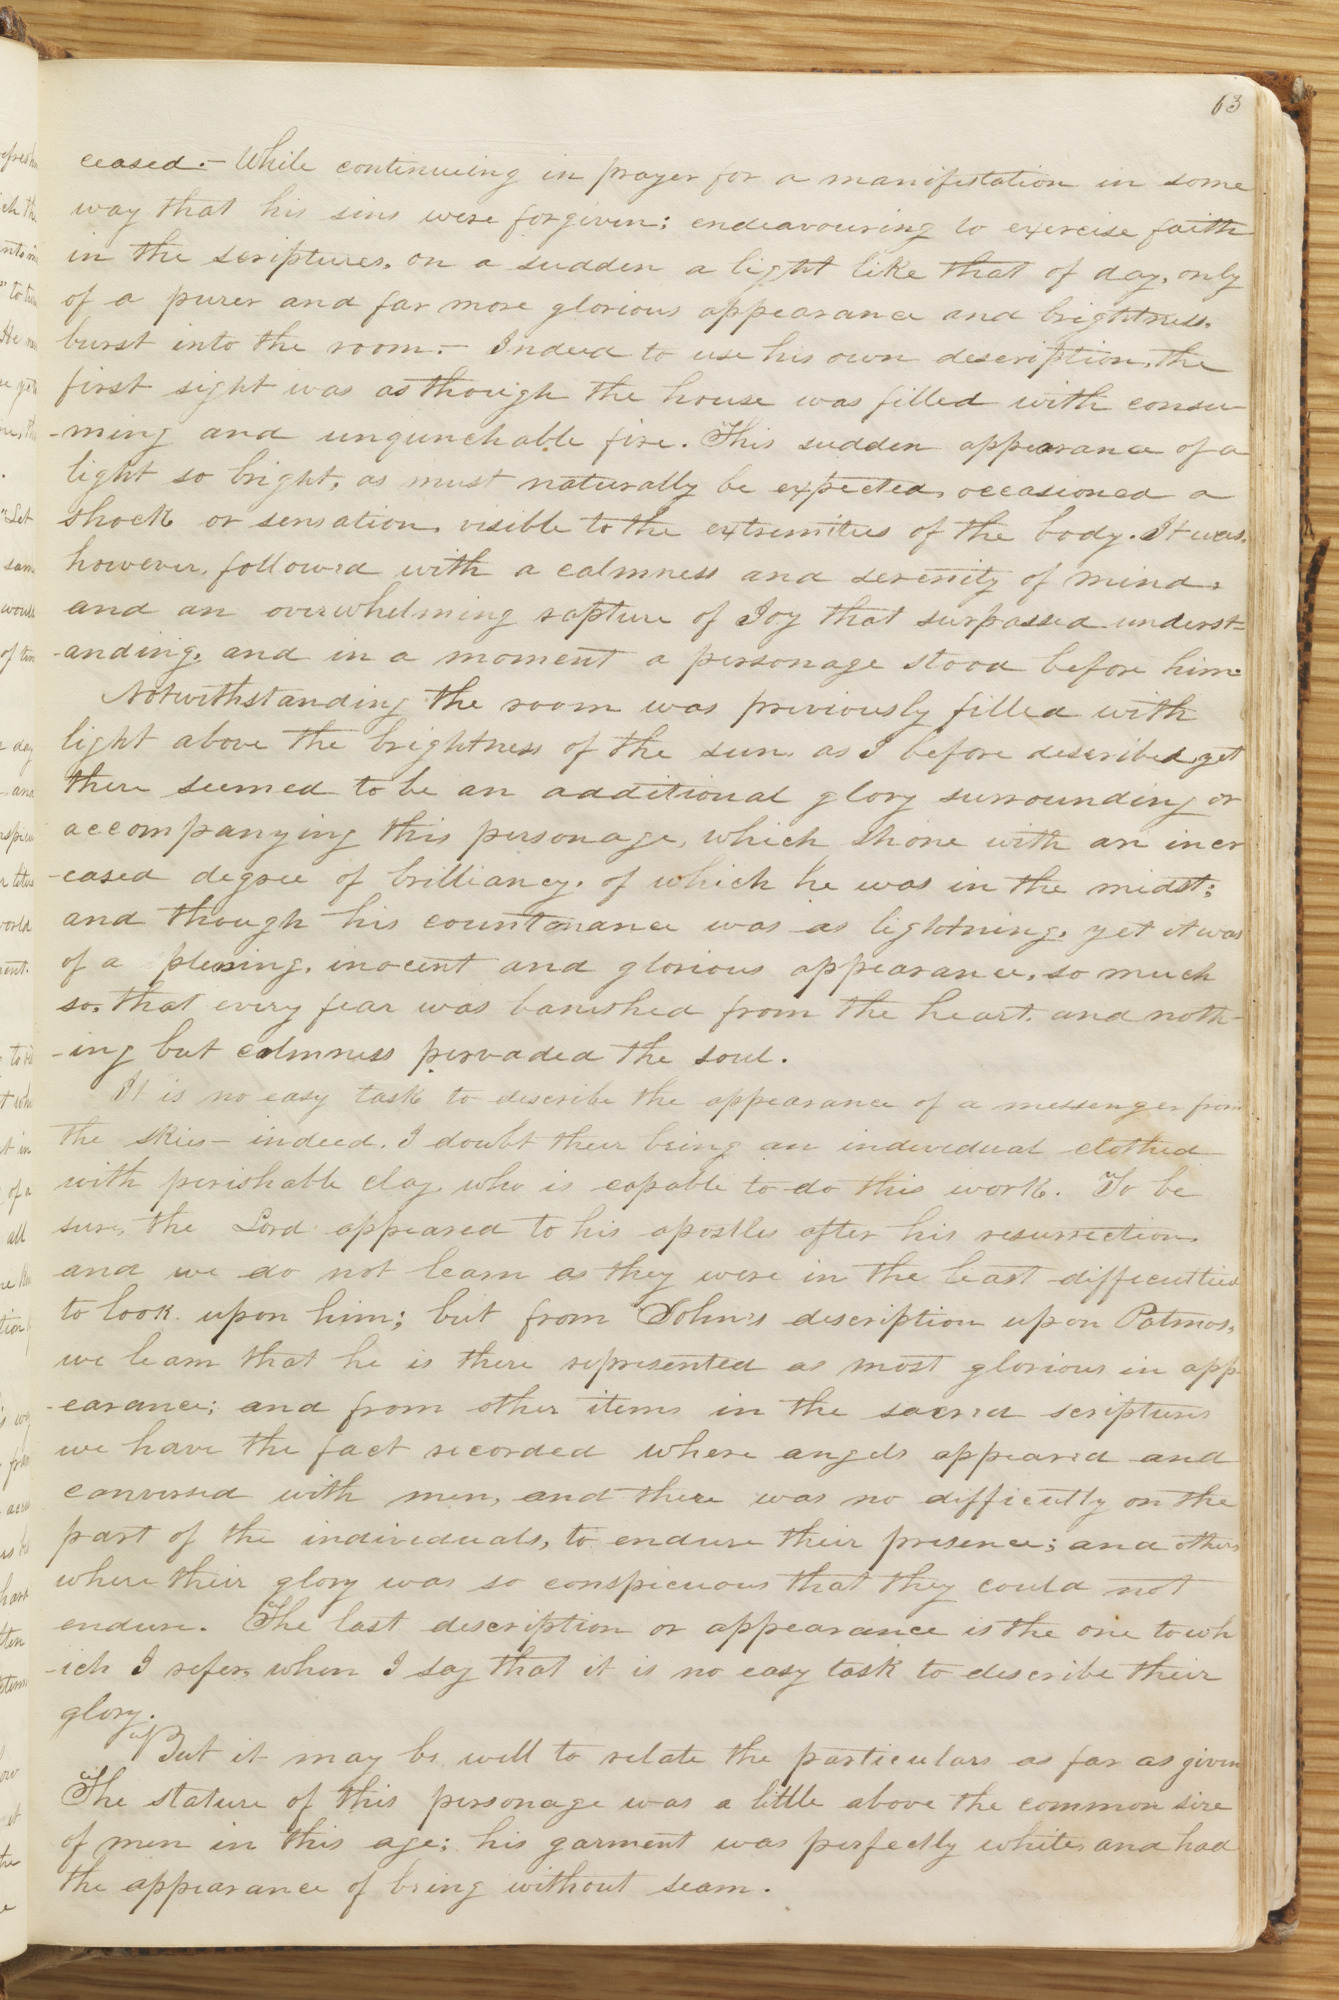 63
ceased.— While continueing in prayer for a manifestation in some
way that his sins were forgiven; endeavouring to exercise faith
in the scriptures, on a sudden a light like that of day, only
of a purer and far more glorious appearance and brightness,
burst into the room.— Indeed to use his own description, the
first sight was as though the house was filled with consu-
-ming and unqunchable fire. This sudden appearance of a
light so bright, as must naturally be expected, occasioned a
shock or sensation, visible to the extremities of the body. It was,
however, followed with a calmness and serenity of mind,
and an overwhelming rapture of Joy that surpassed underst=
-anding, and in a moment a personage stood before him=
Notwithstanding the room was previously filled with
light above the brightness of the sun, as I before described, yet
there seemed to be an additional glory surrounding or
accompanying this personage, which shone with an incr
-eased degree of brilliancy, of which he was in the midst;
and though his countenance was as lightning, yet it was
of a pleasing, inocent and glorious appearance, so much
so, that every fear was banished from the heart, and noth-
-ing but calmness pervaded the soul.
It is no easy task to describe the appearance of a messenger from
the skies— indeed, I doubt their being an individual clothed
with perishable clay, who is capable to do this work. To be
sure, the Lord appeared to his apostles after his resurrection,
and we do not learn as they were in the least difficultied
to look upon him; but from John's description upon Patmos,
we learn that he is there represented as most glorious in app-
-earance; and from other items in the sacred scriptures
we have the fact recorded where angels appeared and
conversed with men, and there was no difficulty on the
part of the individuals, to endure their presence; and others
where their glory was so conspicuous that they could not
endure. The last description or appearance is the one to wh
-ich I refer, when I say that it is no easy task to describe their
glory.
"But it may be well to relate the particulars as far as given
The stature of this personage was a little above the common size
of men in this age; his garment was perfectly white, and had
the appearance of being without seam.